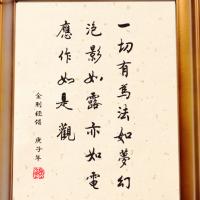 一切有為法如夢幻
泡影如露亦如電
應作如是觀
金剛經頌 庚子年